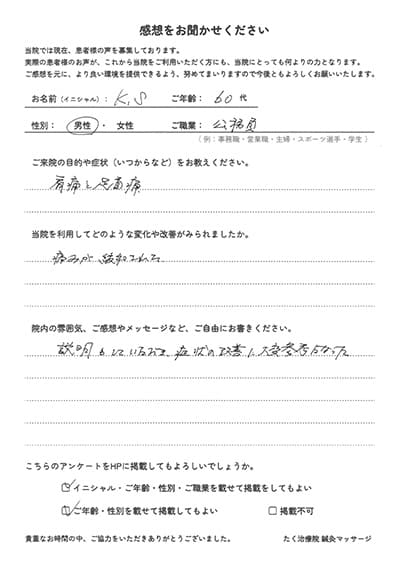 感想をお聞かせください
当院では現在、患者様の声を募集しております。
実際の患者様のお声が、これから当院をご利用いただく方にも、当院にとっても何よりの力となります。
ご感想を元に、より良い環境を提供できるよう、努めてまいりますので今後ともよろしくお願いいたします。
お名前（イニシャル）： K.S ご年齢： 60 代
性別： 男性 ・ 女性 ご職業： 公務員
（ 例：事務職・営業職・主婦・スポーツ選手・学生 ）
ご来院の目的や症状（いつからなど）をお教えください。
肩痛と足首痛
当院を利用してどのような変化や改善がみられましたか。
痛みが緩和された
院内の雰囲気、ご感想やメッセージなど、ご自由にお書きください。
説明もしていただき、症状の改善に大変参考になった
こちらのアンケートをHPに掲載してもよろしいでしょうか。
イニシャル・ご年齢・性別・ご職業を載せて掲載をしてもよい
ご年齢・性別を載せて掲載してもよい 掲載不可
貴重なお時間の中、ご協力をいただきありがとうございました。 たく治療院 鍼灸マッサージ